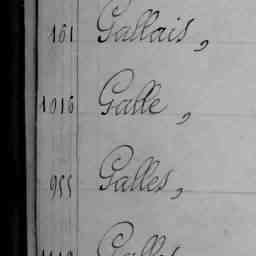 161 Gallais,
1016 Galle,
955 Galles,
Galles